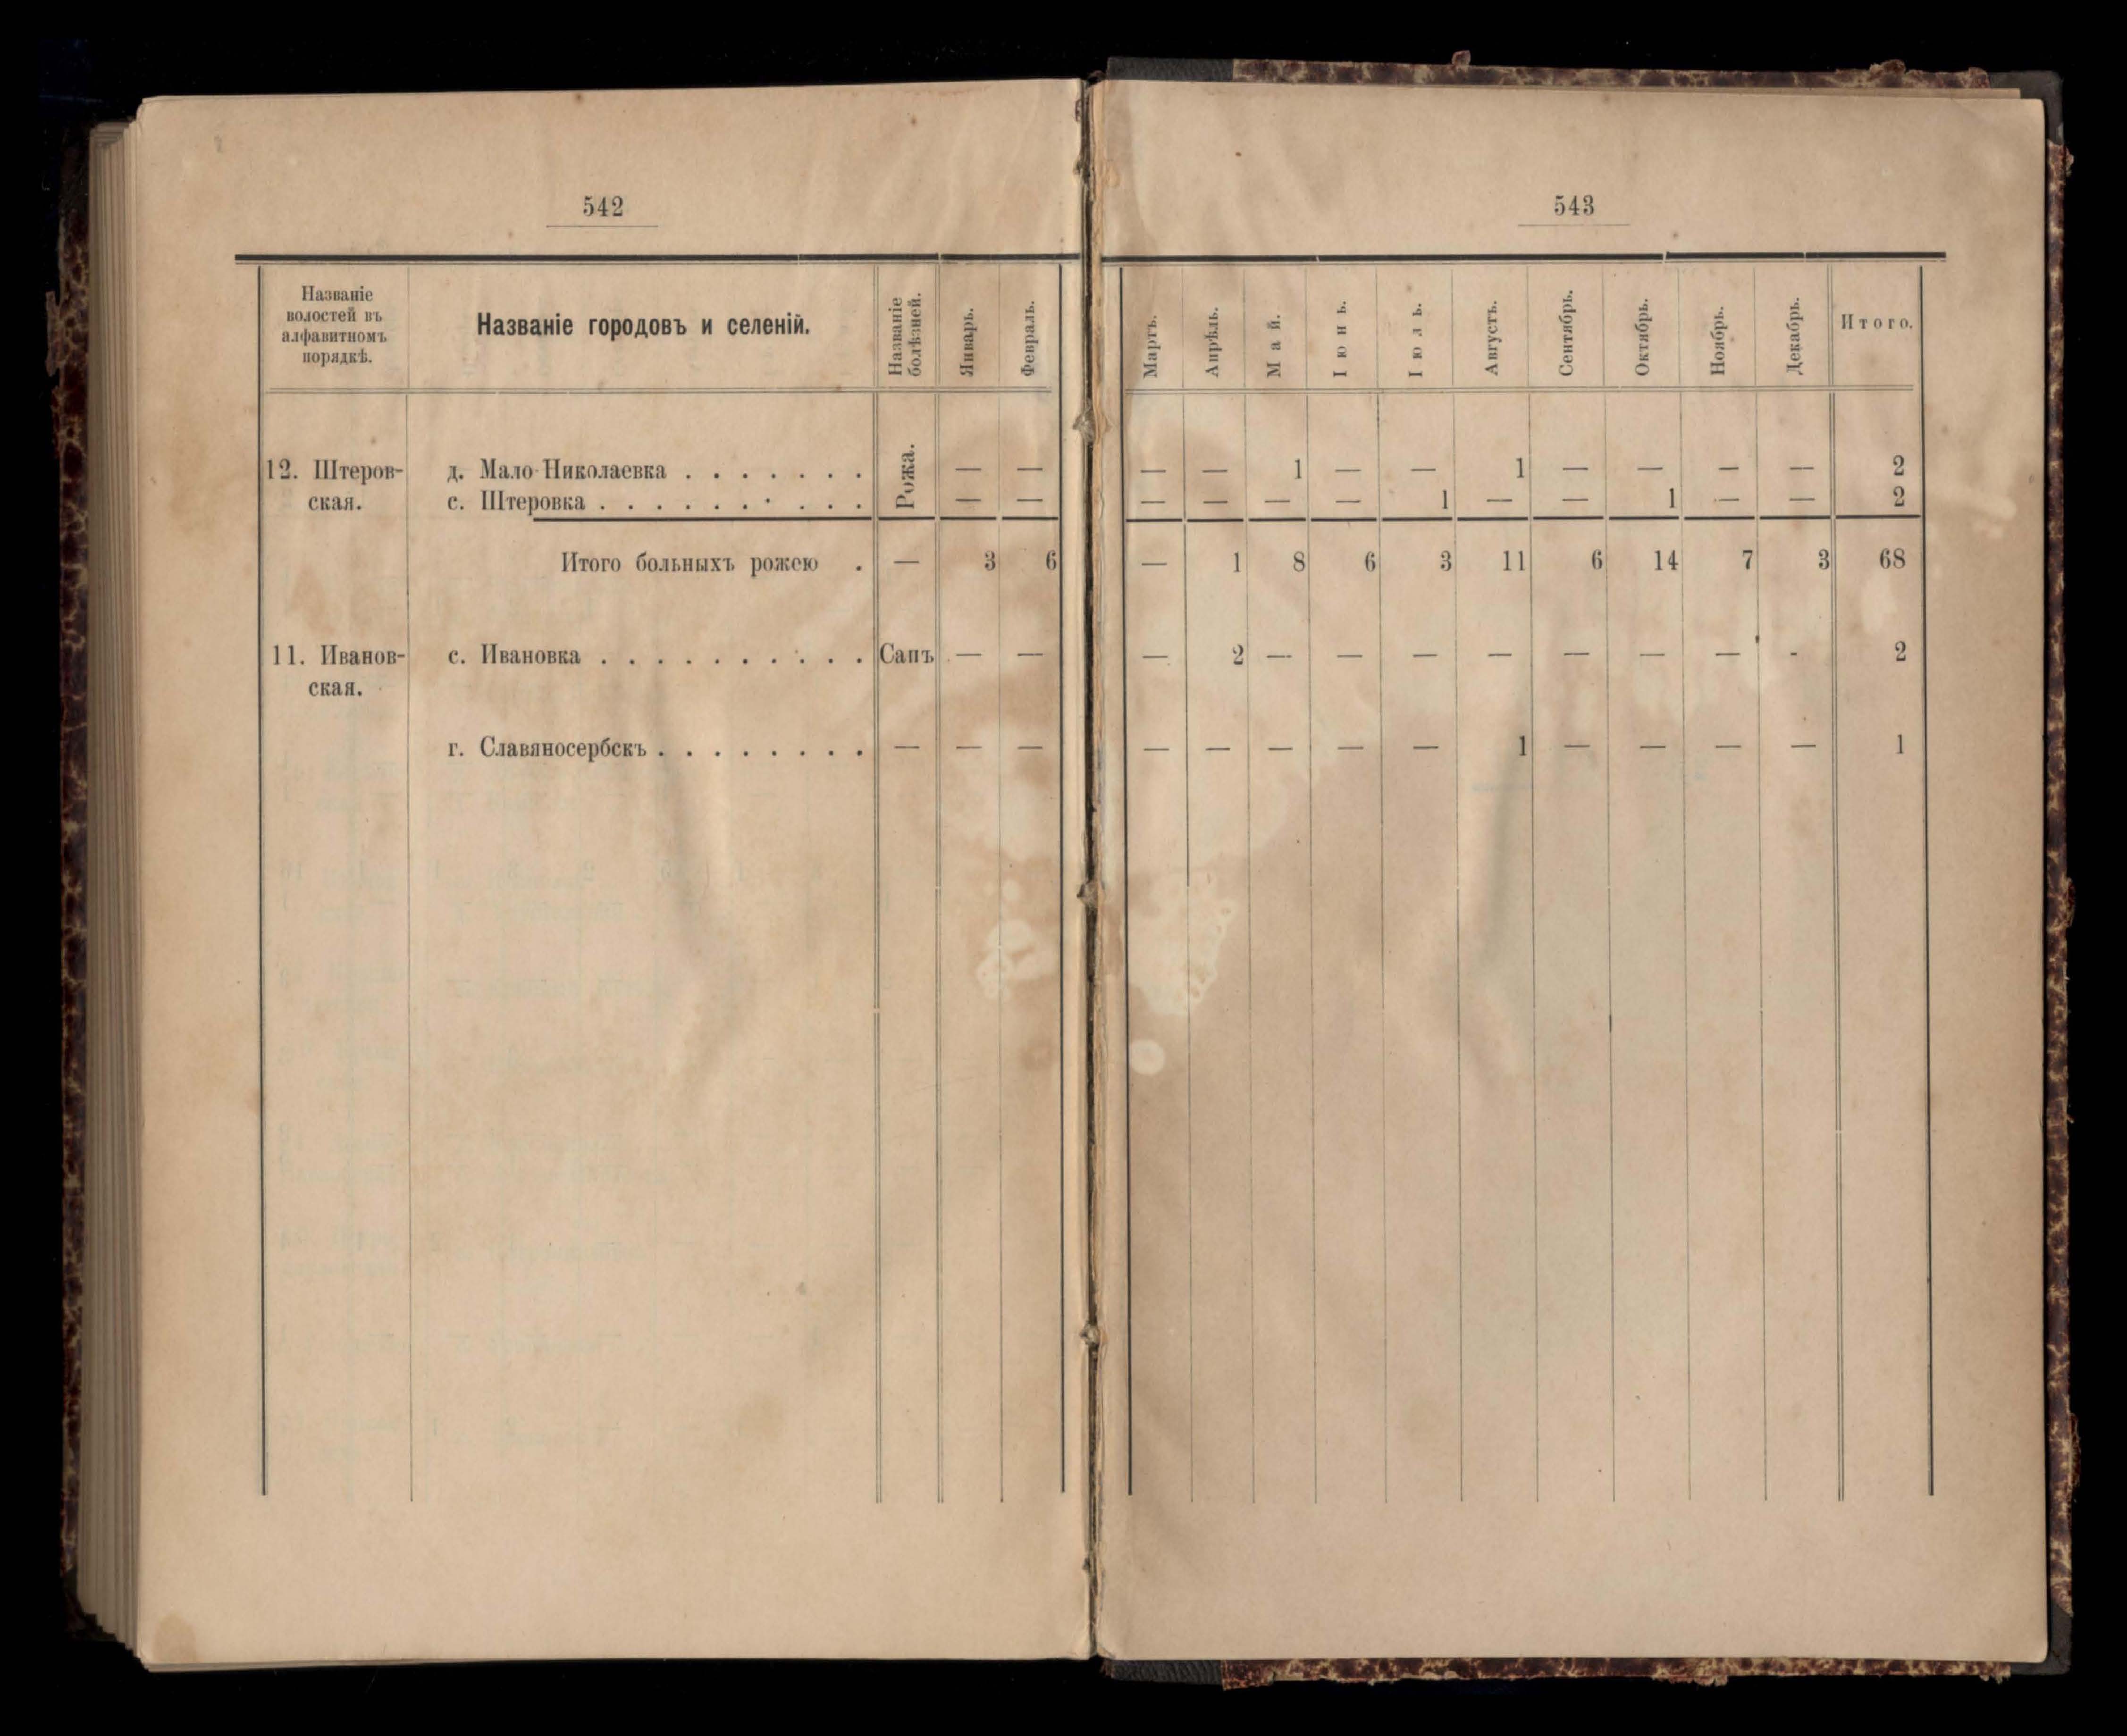 542
543
Названіе
волостей въ
алфавитномъ
порядкѣ.
Названіе городовъ и селеній.
Названіе
болѣзней.
Январь.
Февраль.
Мартъ.
Апрѣль.
Май.
Іюнь.
Іюль.
Августъ.
Сентябрь.
Октябрь.
Ноябрь.
Декабрь.
Итого.
Рожа.
12. Штеров- д. Мало-Николаевка . . . . . . . — — — — 1 — — 1 — — — — 2
ская. с. Штеровка . . . . . . . . . . — — — — — — 1 — — 1 — — 2
Итого больныхъ рожею . — 3 6 — 1 8 6 3 11 6 14 7 3 68
11. Иванов- с. Ивановка . . . . . . . . . . Сапъ — — — 2 — — — — — — — - 2
ская.
г. Славяносербскъ . . . . . . . . — — — — — — — — 1 — — — — 1